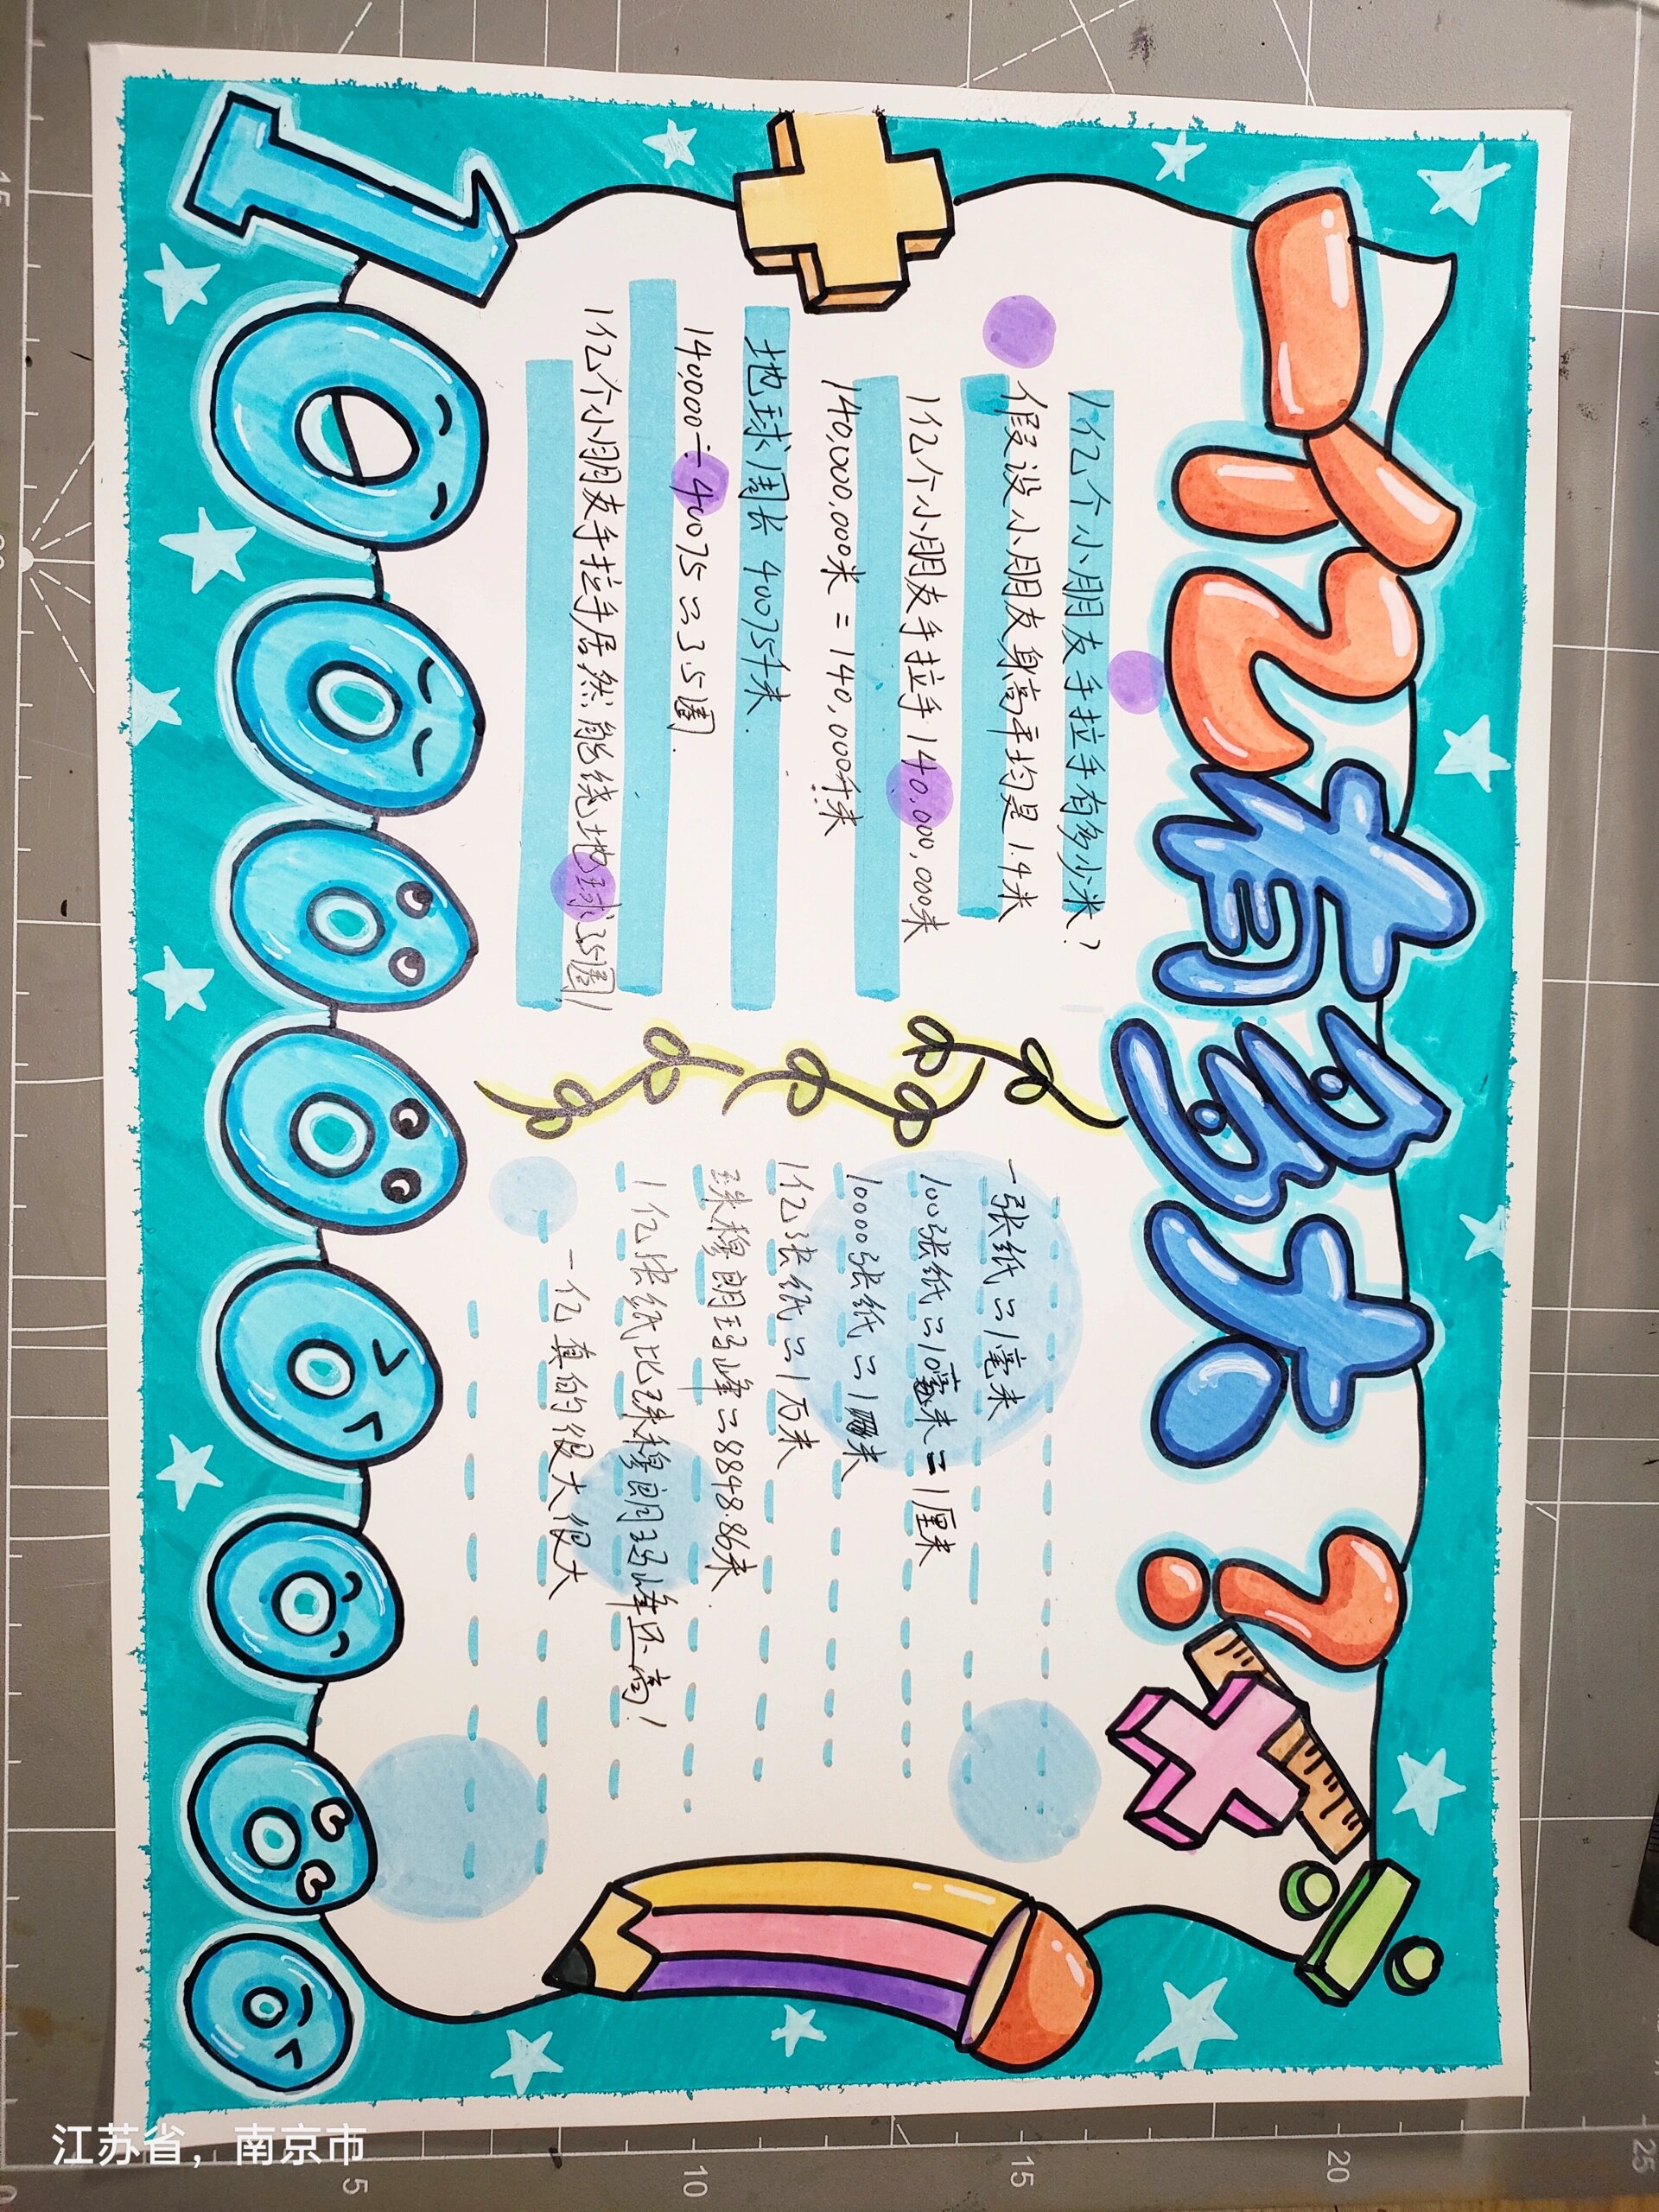 一亿有多大?
1亿个小朋友手拉手有多少米?
假设小朋友身高平均是1.4米
1亿个小朋友手拉手140,000,000米
140,000,000米=140,000千米
地球周长 40075千米.
140,000÷40075≈3.5圈.
1亿个小朋友手拉手居然能绕地球3.5圈!
一张纸≈1毫米
100张纸≈10毫米=1厘米
10000张纸≈1米
1亿张纸≈1万米
珠穆朗玛峰≈8848.86米.
1亿张纸比珠穆朗玛峰还高!
一亿真的很大很大
100000000
5
10
15
20
25
江苏省，南京市